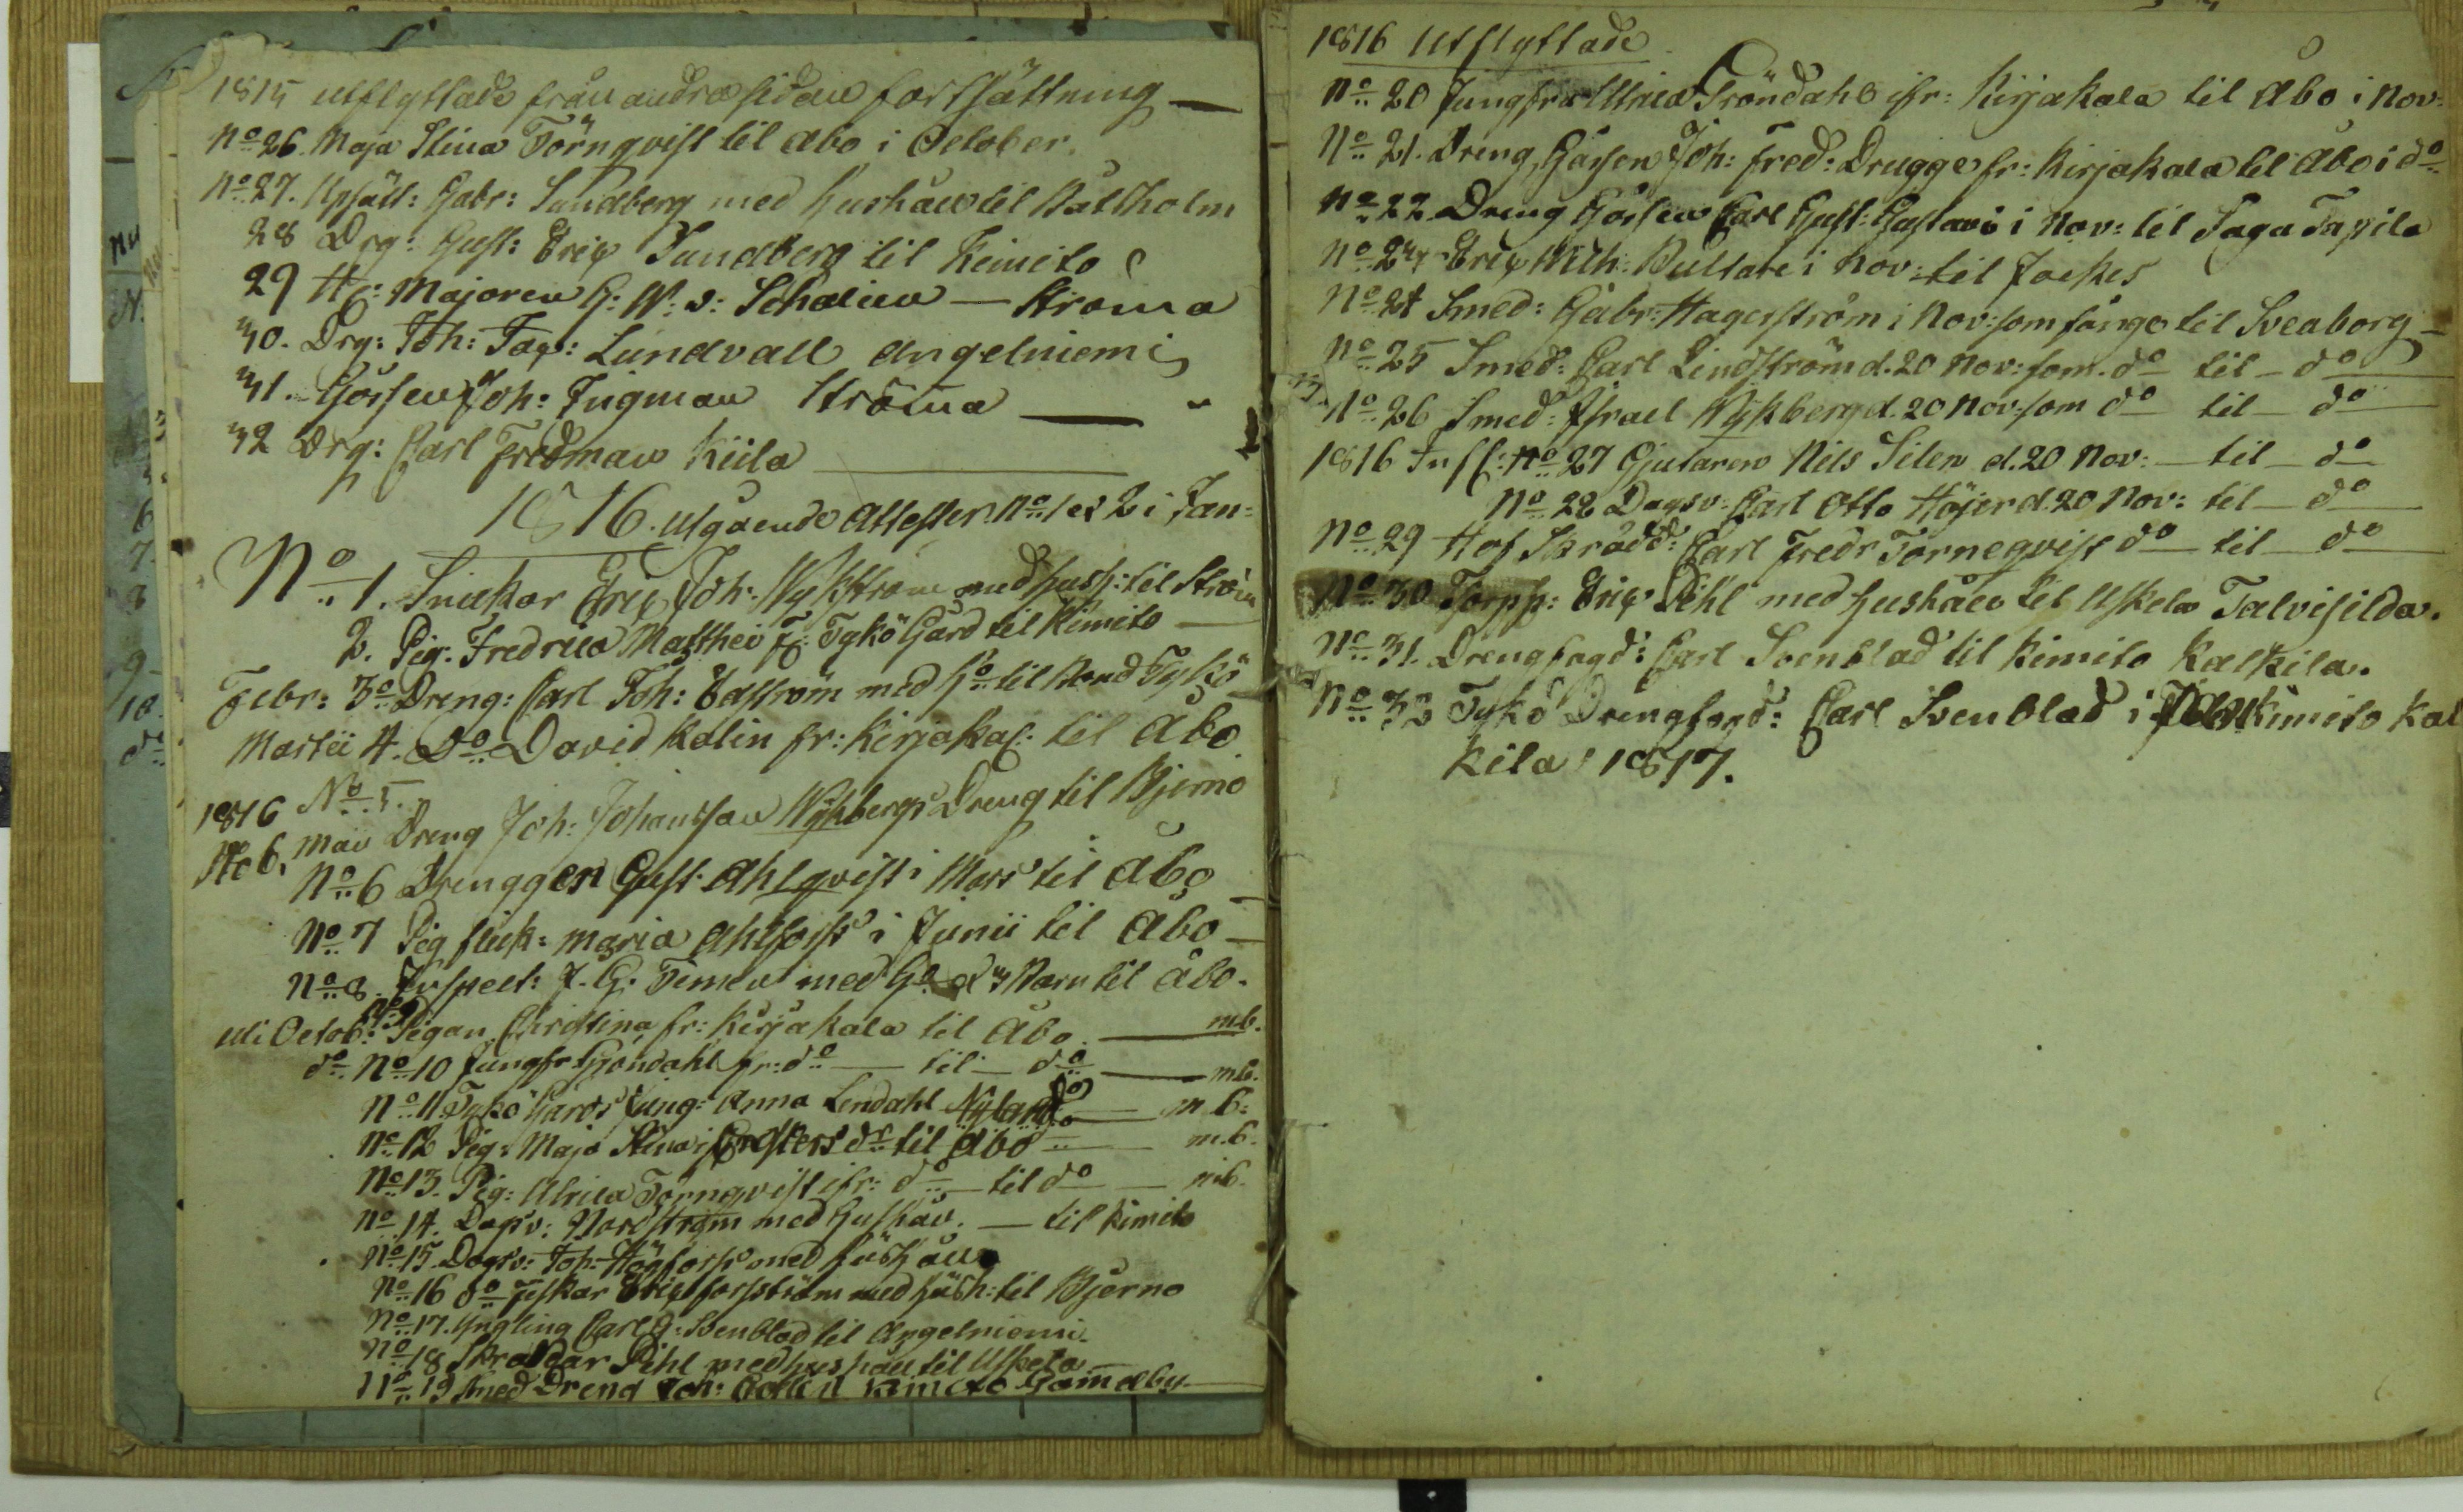 1815 utflyttade från andra sidan fortsättning —
No 26. Maja Stina Törnqvist til Åbo i October.
No 27. Upsätt: Gabr: Sundberg med hushåll til Båtholm
28 Drg: Gust: Eric Sundberg til Kimito
29 Hr: Majoren G: W: v: Schalien — Ströma
30. Drg: Joh: Jac: Lundvall Angelniemi
31. Gossen Joh: Fugman Ströma —
32 Drg: Carl Fredman Kiila
1816. utgående Attester. No 1 et 2 i Jan:
No 1. Snickar Eric Joh: Wykström med hush: til Ström
2. Pig: Fredrica Matthei f: Tykö Gård til Kimito —
Febr: 3o Dreng: Carl Joh: Edström med ho til Tykö
Martii 4. do David Kalin fr: Kirjakal: til Åbo
1816 No 5.
Maii Dreng Joh: Johansson Wykbergs Dreng til Bjerno
No 6. No 6 Drenggen Gust: Ahlqvist i Mars til Åbo
No 7 Pig flick: Maria Ahlfors i Junii til Åbo —
No 8. Inspect: J. G. Temen med til Åbo.
uti Octob: No 9 Pigan Carolina fr: Kirjakala til Åbo. — m.b.
do No 10 Jungfr Gröndahl fr: do — til — do — m.b.
No 11. Tykö Gårds jung: Anna Lendahl Nyland do — m.b:
No 12 Pig: Maja Stina til Åbo — m.b.
No 13. Pig: Ulrica Törnqvist ifr: do — til do — m.b.
No 14. Dagsv: Nordström med hushåll. — til Kimito
No 15. Dagsv: Joh: Högfors med hushåll
No 16 do Fiskar Eric Forsström med hush: til Bjerno
No 17. Yngling Carl G: Svenblad til Angelniemi.
No 18 Skräddar Pihl med hushåll til Uskela —
No 19 Smed Dreng Joh: Kimito Gammalby —
1816 Utflyttade
No 20 Jungfru Ulrica Gröndahl ifr: Kirjakala til Åbo i Nov:
No 21. Dreng Gossen Joh: Fred: Drugge fr: Kirjakala til Åbo i do
No 22 Dreng Gossen Carl Gust: Gustavi i Nov: til Saga Tapila
No 23 Eric Wilh: Bullare i Nov: til Jockes
No 24 Smed: Gabr: Hagerström i Nov: som fånge til Sveaborg —
No 25 Smed: Carl Lindström d. 20 Nov: som. do til — do
No 26 Smed: Israel Wykberg d. 20 Nov: som do til — do
1816 Infl: No 27 Gjutaren Nils Silen d. 20 Nov: — til — do
No 28 Dagsv: Carl Otto Höjer d. 20 Nov: til — do
No 29 Hof Skrädd: Carl Fredr Törneqvist do — til — do
No 30 Torpp: Eric Pihl med hushåll til Uskela Talvisilda.
No 31. Drengfogd: Carl Svenblad til Kimito Kalkila.
No 32 Tykö Drengfogd: Carl Svenblad i Kimito Kal
kila 1817.